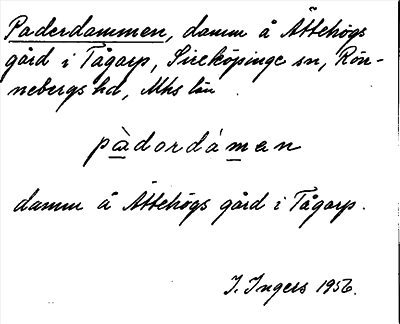 Paderdammen, damm å Ättehögs
gård i Tågarp, Sireköpinge sn, Rön-
nebergs hd, Mhs län
pàdordámen
damm å Ättehögs gård i Tågarp.
I. Ingers 1956.